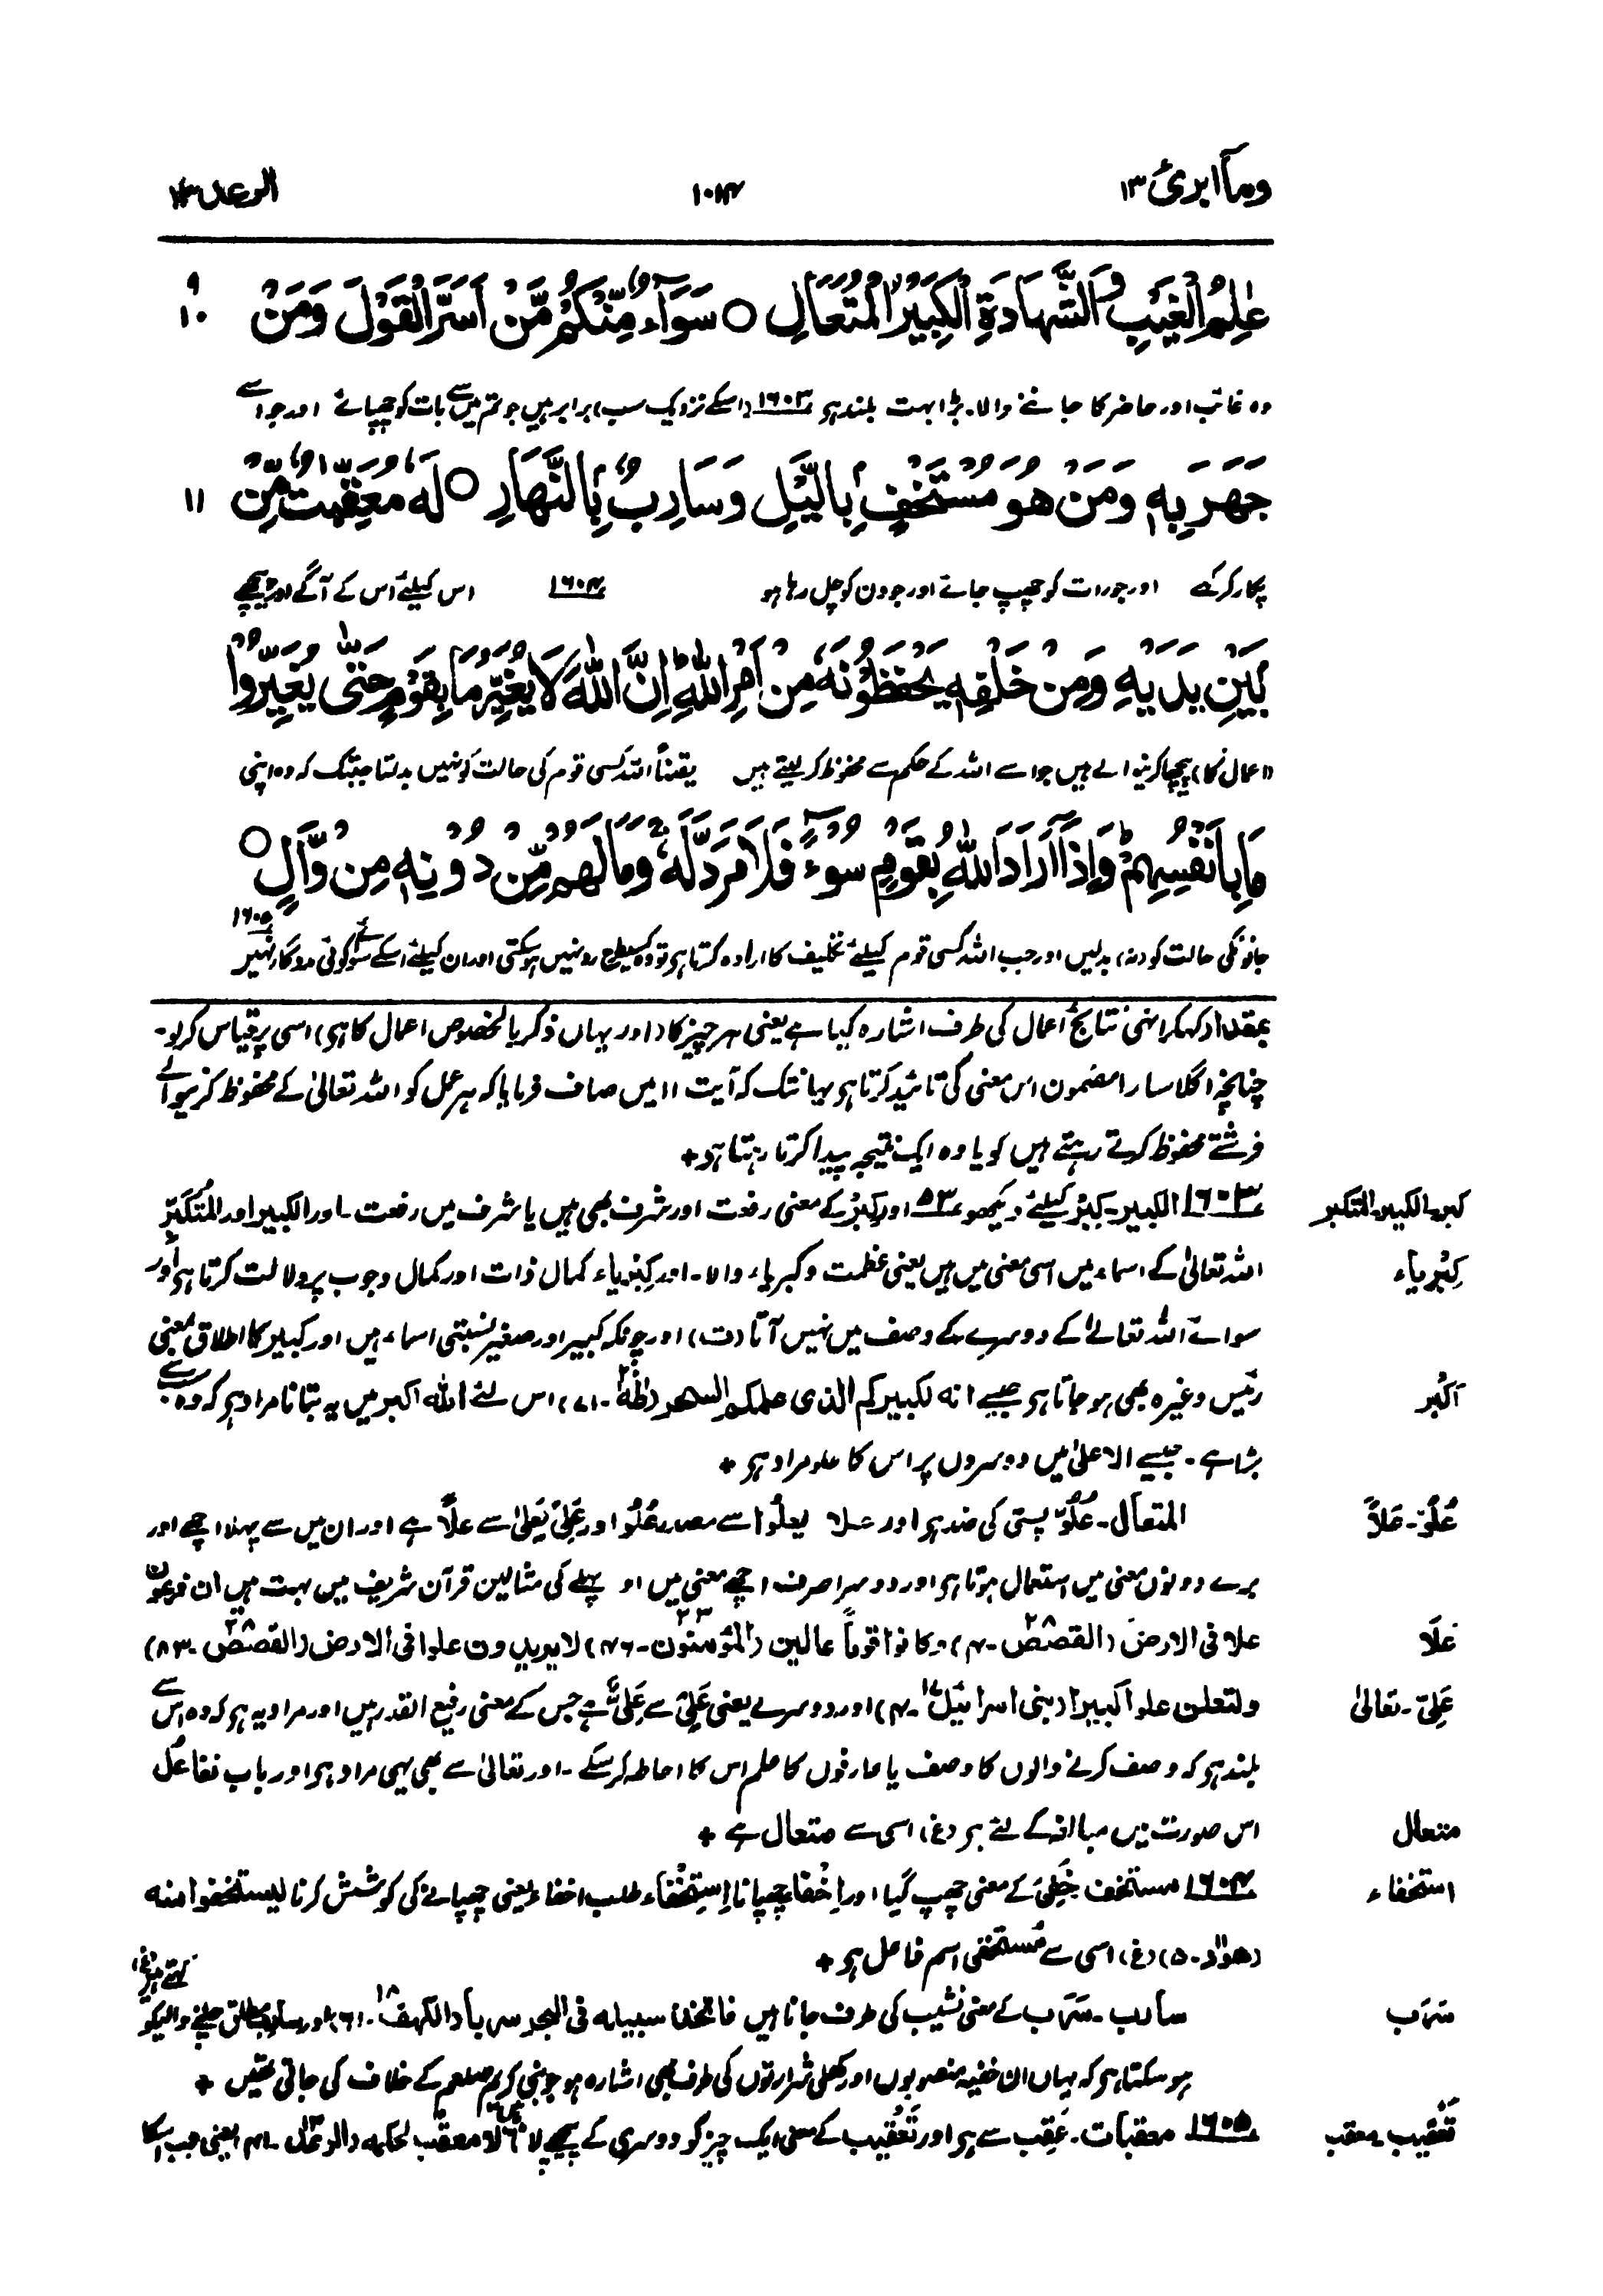 ومآ ابرئ ۱۳ ۱۰۱۴ الرعد ۱۳
عٰلِمُ الْغَيْبِ وَالشَّهَادَةِ الْكَبِيْرُ الْمُتَعَالِ ○ سَوَآءٌ مِّنْكُمْ مَّنْ اَسَرَّ الْقَوْلَ وَمَنْ ۹ ۱۰
وہ غائب اور حاضر کا جاننے والا۔ بڑا بہت بلند ہو ۱۶۰۳ (اسکے نزدیک سب) برابر ہیں جو تم میں سے بات کو چھپائے اور جو اسے
جَهَرَ بِهٖ وَمَنْ هُوَ مُسْتَخْفٍۭ بِالَّيْلِ وَسَارِبٌۢ بِالنَّهَارِ ○ لَهٗ مُعَقِّبٰتٌ مِّنْۢ ۱۱
پکار کر کہے اور جو رات کو چھپ جائے اور جو دن کو چل رہا ہو ۱۶۰۴ اس کیلئے اس کے آگے اور پیچھے
بَيْنِ يَدَيْهِ وَمِنْ خَلْفِهٖ يَحْفَظُوْنَهٗ مِنْ اَمْرِ اللّٰهِ ؕ اِنَّ اللّٰهَ لَا يُغَيِّرُ مَا بِقَوْمٍ حَتّٰى يُغَيِّرُوْا
(اعمال کا) پیچھا کرنیوالے ہیں جو اسے اللہ کے حکم سے محفوظ کر لیتے ہیں یقیناً اللہ کسی قوم کی حالت کو نہیں بدلتا جبتک کہ وہ اپنی
مَا بِاَنْفُسِهِمْ ؕ وَاِذَاۤ اَرَادَ اللّٰهُ بِقَوْمٍ سُوْٓءًا فَلَا مَرَدَّ لَهٗ ۚ وَمَا لَهُمْ مِّنْ دُوْنِهٖ مِنْ وَّالٍ ○
جانونکی حالت کو (نہ) بدلیں اور جب اللہ کسی قوم کیلئے تکلیف کا ارادہ کرتا ہو تو وہ کسیطرح رد نہیں ہو سکتی اور ان کیلئے اسکے سوائے کوئی مددگار نہیں ۱۶۰۵
بمقدار کہکر انہی نتائج اعمال کی طرف اشارہ کیا ہے یعنی ہر چیز کا (اور یہاں ذکر بالخصوص اعمال کا ہی) اسی پر قیاس کر لو۔
چنانچہ اگلا سارا مضمون اس معنی کی تائید کرتا ہو یہانتک کہ آیت ۱۱ میں صاف فرمایا کہ ہر عمل کو اللہ تعالیٰ کے محفوظ کرنیوالے
فرشتے محفوظ کرتے رہتے ہیں گویا وہ ایک نتیجہ پیدا کرتا رہتا ہو +
کبر۔ الکبیر۔ المتکبر ۱۶۰۳ الکبیر۔ کِبْر کیلئے دیکھو ۵۳ اور کِبَر کے معنی رفعت اور شرف بھی ہیں یا شرف میں رفعت۔ اور الکبیر اور المُتَکَبِّر
کِبْرِیاء اللہ تعالیٰ کے اسماء میں اسی معنی میں ہیں یعنی عظمت و کبریاء والا۔ اور کِبْرِیاء کمال ذات اور کمال وجوب پر دلالت کرتا ہو اور
سوائے اللہ تعالیٰ کے دوسرے کے وصف میں نہیں آتا (ت) اور چونکہ کبیر اور صغیر نسبتی اسماء ہیں اور کبیر کا اطلاق بمعنی
اَکْبَر رئیس وغیرہ بھی ہو جاتا ہو جیسے انه لکبیرکم الذی علمکم السحر (طٰهٰ۲۰۔ ۷۱) اس لئے الله اکبر میں یہ بتانا مراد ہو کہ وہ سب سے
بڑا ہے۔ جیسے الاعلیٰ میں دوسروں پر اس کا علو مراد ہو +
عُلُوّ۔ عَلاً المتعال۔ عُلُوّ پستی کی ضد ہو اور عَلا یعلُوْ سے مصدر عُلُوّ اور عَلِیَ یَعْلیٰ سے علاً ہے اور ان میں سے پہلا اچھے اور
برے دونوں معنی میں استعمال ہوتا ہو اور دوسرا صرف اچھے معنی میں او پہلے کی مثالیں قرآن شریف میں بہت ہیں ان فرعون
عَلَا علا فی الارض (القصص۲۸۔ ۴) وکانوا قوماً عالین (المؤمنون۲۳۔ ۴۶) لا یریدون علوا فی الارض (القصص۲۸۔ ۸۳)
عَلِیّ۔ تعالیٰ ولتعلن علوا کبیرا (بنی اسرائیل۱۷۔ ۴) اور دوسرے یعنی عَلِیَ سے عَلِیٌّ ہے جس کے معنی رفیع القدر ہیں اور مراد یہ ہو کہ وہ اس سے
بلند ہو کہ وصف کرنے والوں کا وصف یا عارفوں کا علم اس کا احاطہ کر سکے۔ اور تعالیٰ سے بھی یہی مراد ہو اور باب تفاعُل
متعال اس صورت میں مبالغہ کے لئے ہو (غ) اسی سے متعال ہے +
استخفاء ۱۶۰۴ مستخف خَفِیَ کے معنی چھپ گیا اور اِخْفاء چھپانا اِسْتِخْفَاء طلب اخفاء یعنی چھپانے کی کوشش کرنا لیستخفوا منه
(ھود۱۱۔ ۵) (غ) اسی سے مُستخفی اسم فاعل ہو +
سَرَب سارب۔ سَرَب کے معنی نشیب کی طرف جانا ہیں فاتخذ سبیله فی البحر سربا (الکہف۱۸۔ ۶۱) اور سارب مطلق چلنے والیکو کہتے ہیں (غ)
ہو سکتا ہو کہ یہاں ان خفیہ منصوبوں اور کھلی شرارتوں کی طرف بھی اشارہ ہو جو نبی کریم صلعم کے خلاف کی جاتی تھیں +
تَعْقِیب۔ معقب ۱۶۰۵ معقبات۔ عَقِب سے ہو اور تَعْقِیب کے معنی ایک چیز کو دوسری کے پیچھے لانا ہیں لا معقب لحکمه (الرعد۱۳۔ ۴۱) یعنی جب اسکا